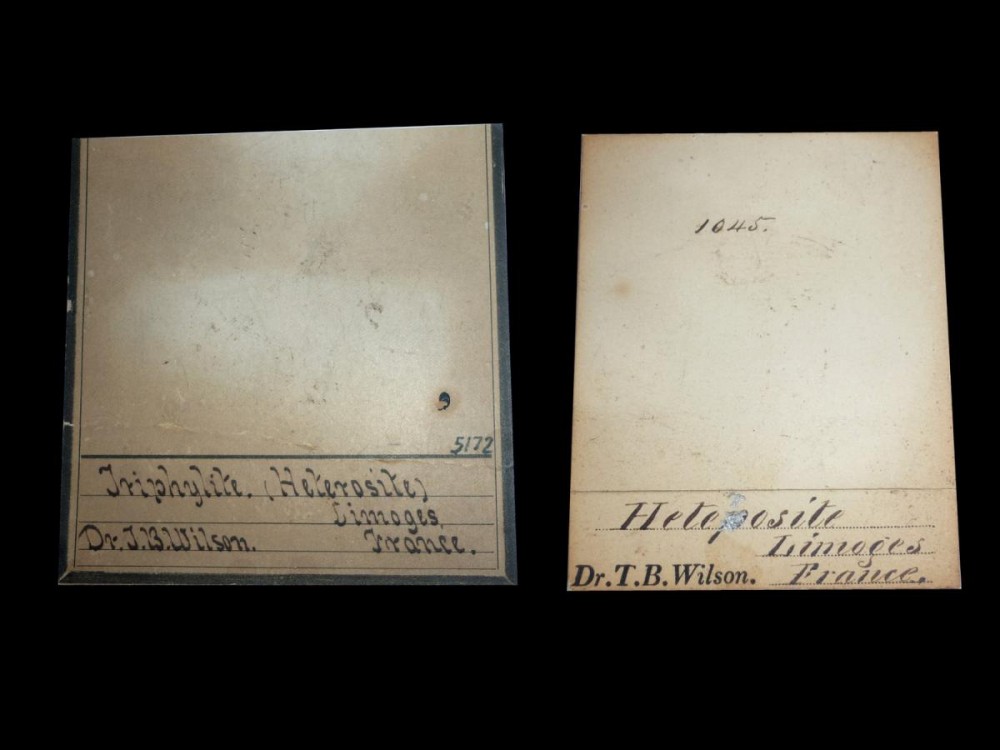 5172
Triphylite. (Heterosite)
Limoges,
Dr. T. B. Wilson. France.
1045.
Heteposite
Limoges
Dr. T. B. Wilson. France.